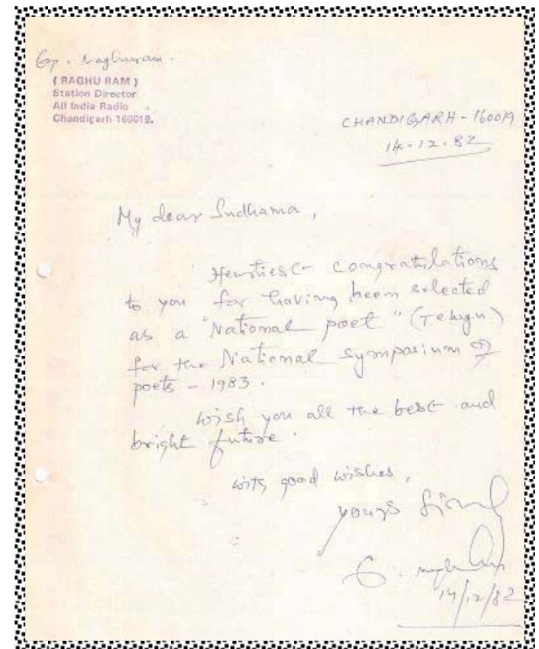 G. Raghuram.
( RAGHU RAM )
Station Director
All India Radio
Chandigarh-160019.
CHANDIGARH - 160019
14.12.82
My dear Sudhama,
Heartiest congratulations
to you for having been selected
as a "National poet" (Telugu)
for the National Symposium of
poets - 1983.
Wish you all the best and
bright future.
With good wishes,
yours
G.
14/12/82